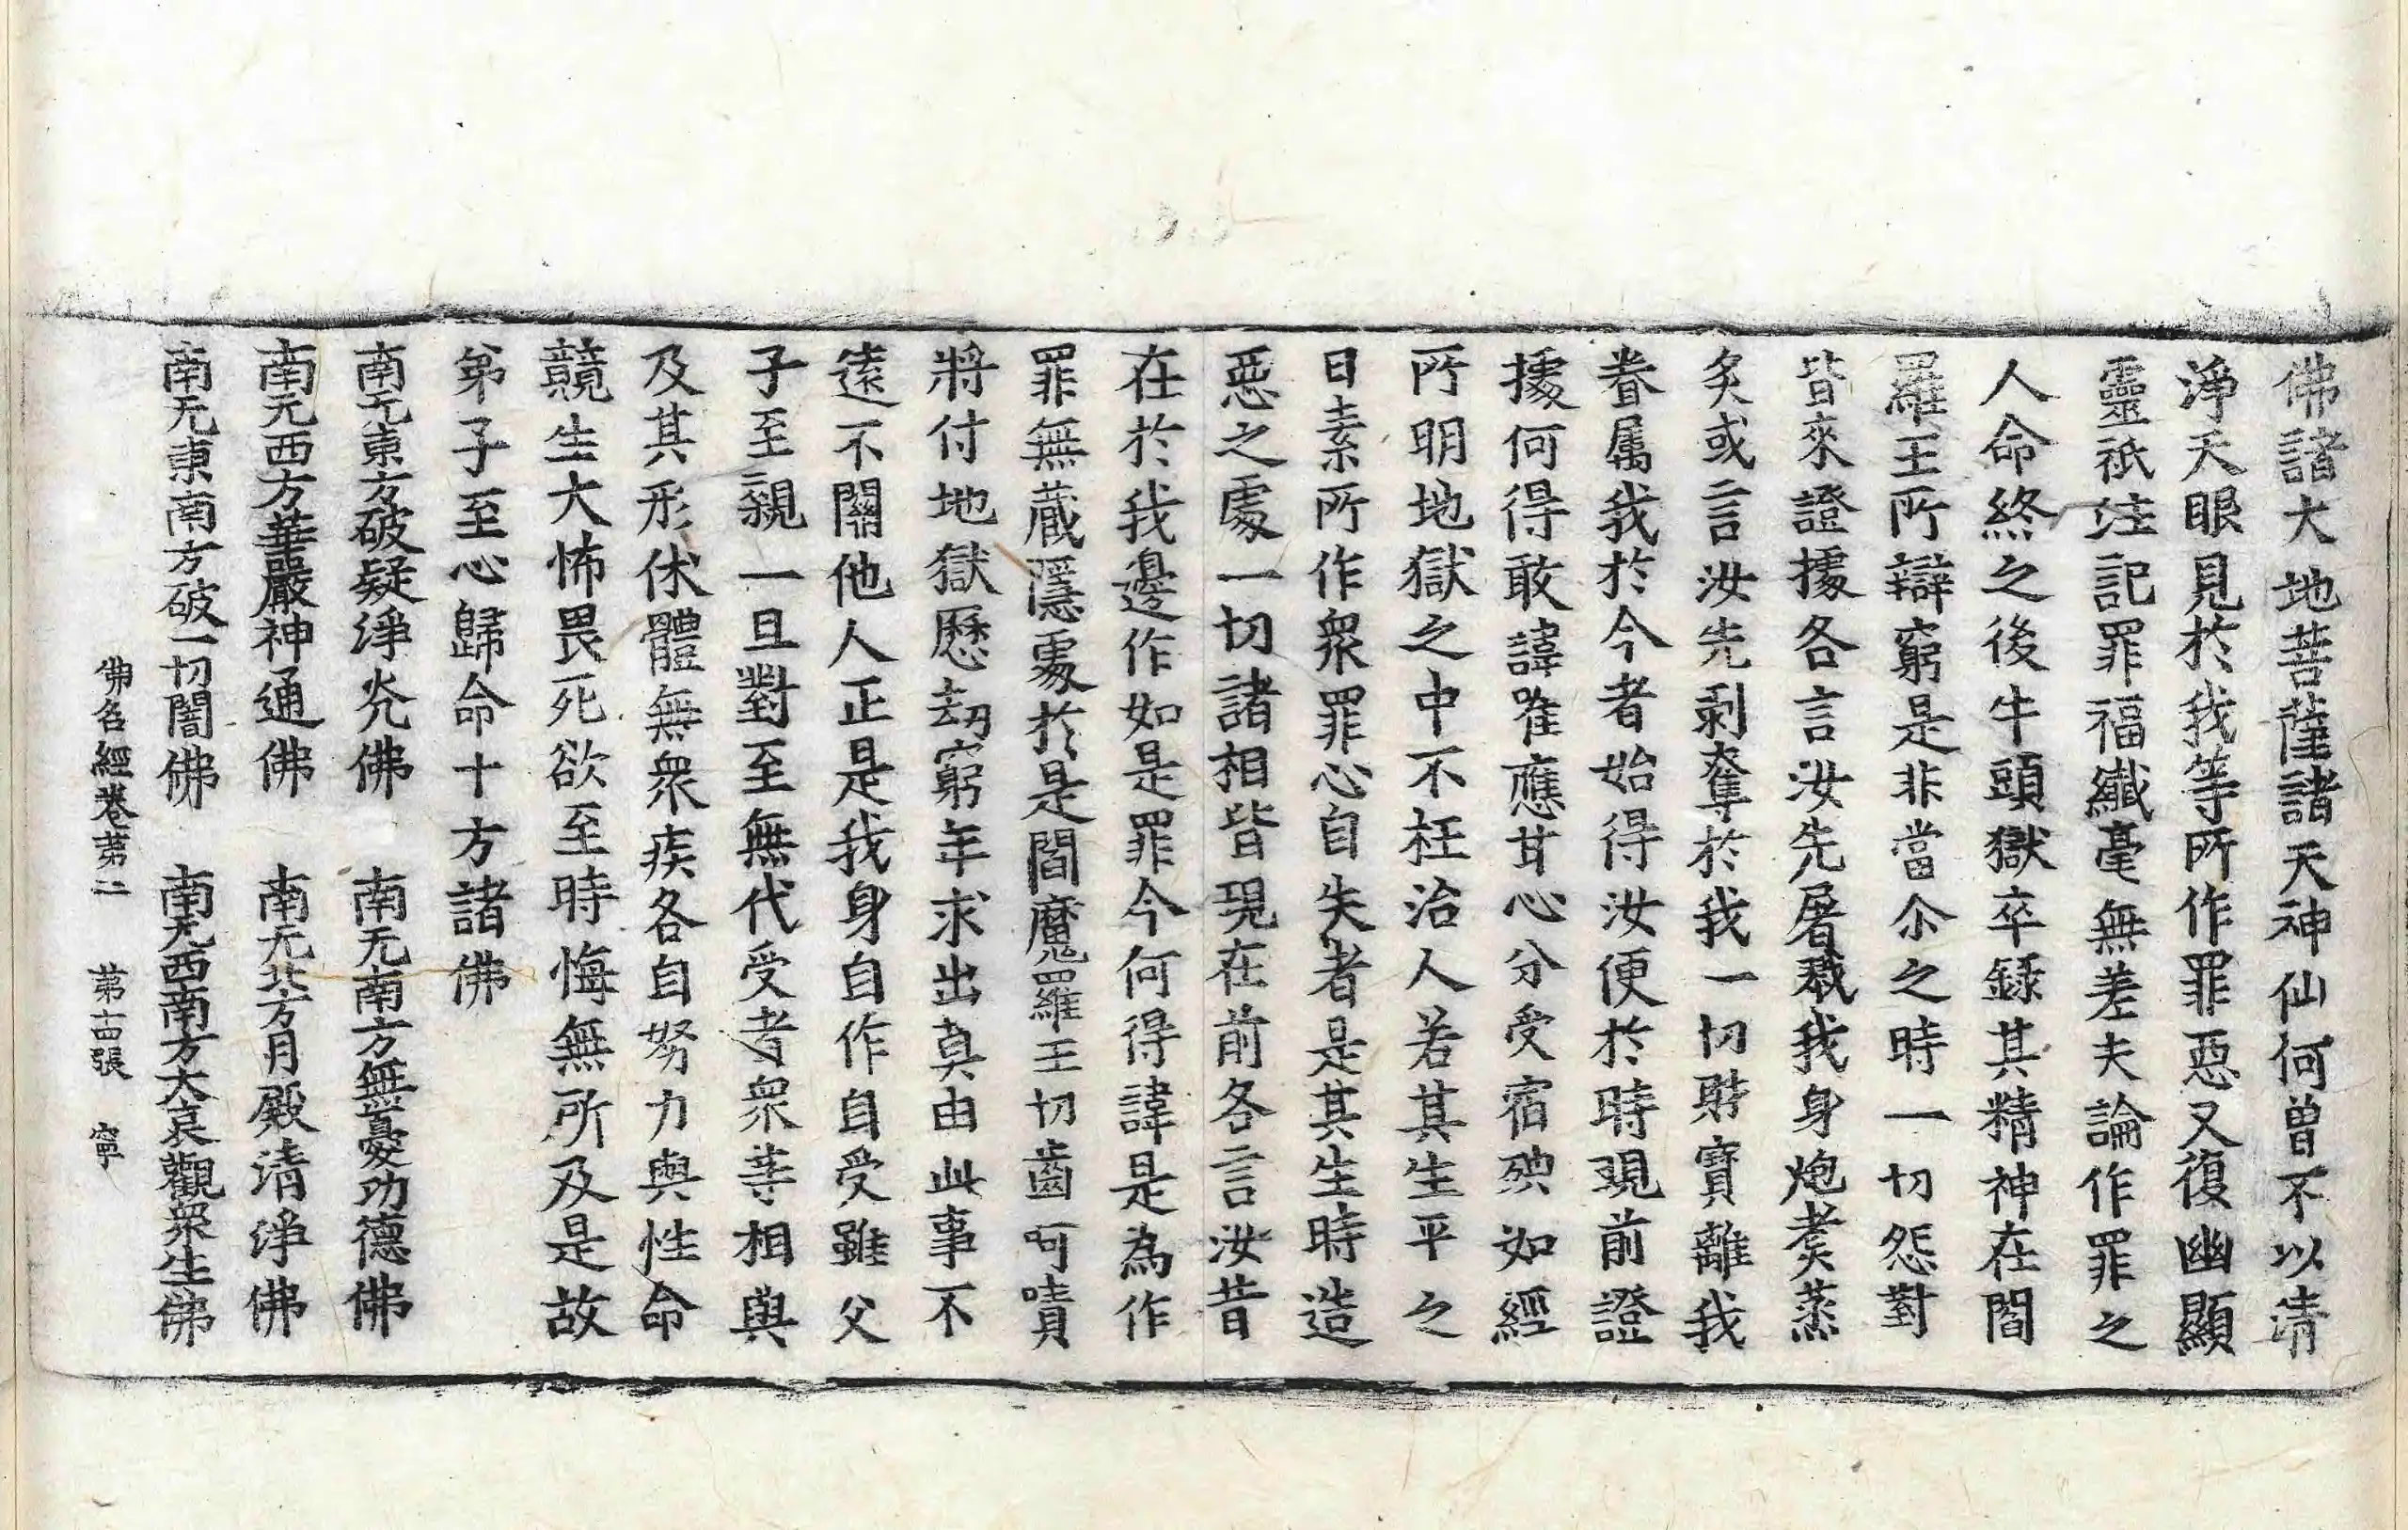 佛諸大地菩薩諸天神仙何曽不以清
淨天眼見於我等所作罪惡又復幽顯
靈祇注記罪福纎毫無差夫論作罪之
人命終之後牛頭獄卒錄其精神在閻
羅王所辯窮是非當尒之時一切怨對
皆來證據各言汝先屠煞我身炮煑蒸
炙或言汝先剥奪於我一切財寶離我
眷属我於今者始得汝便於時現前證
據何得敢諱唯應甘心分受宿殃如經
所明地獄之中不枉治人若其生平之
日素所作衆罪心自失者是其生時造
惡之處一切諸相皆現在前各言汝昔
在於我邊作如是罪今何得諱是為作
罪無藏隱處於是閻魔羅王切齒呵嘖
將付地獄歷劫窮年求出莫由此事不
遠不關他人正是我身自作自受雖父
子至親一旦對至無代受者衆等相與
及其形休體無衆疾各自努力與性命
競生大怖畏死欲至時悔無所及是故
弟子至心歸命十方諸佛
南无東方破疑淨光佛　南无南方無憂功德佛
南无西方華嚴神通佛　南无北方月殿清淨佛
南无東南方破一切闇佛　南无西南方大哀觀衆生佛
佛名經卷苐二　苐十四張　寧